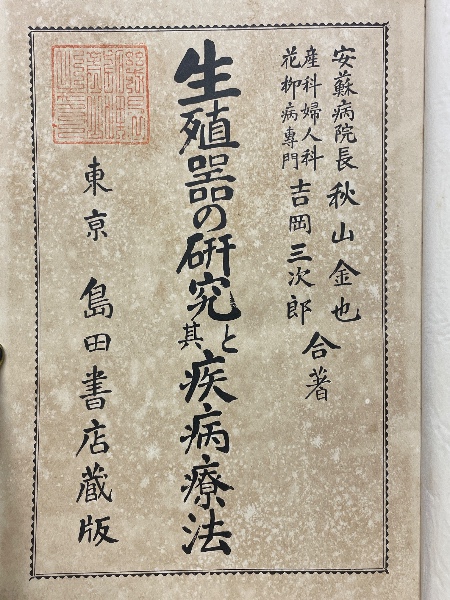 安蘇病院長 秋山金也
産科婦人科
花柳病専門 吉岡三次郎
合著
生殖器の研究と
其疾病療法
東京 島田書店蔵版